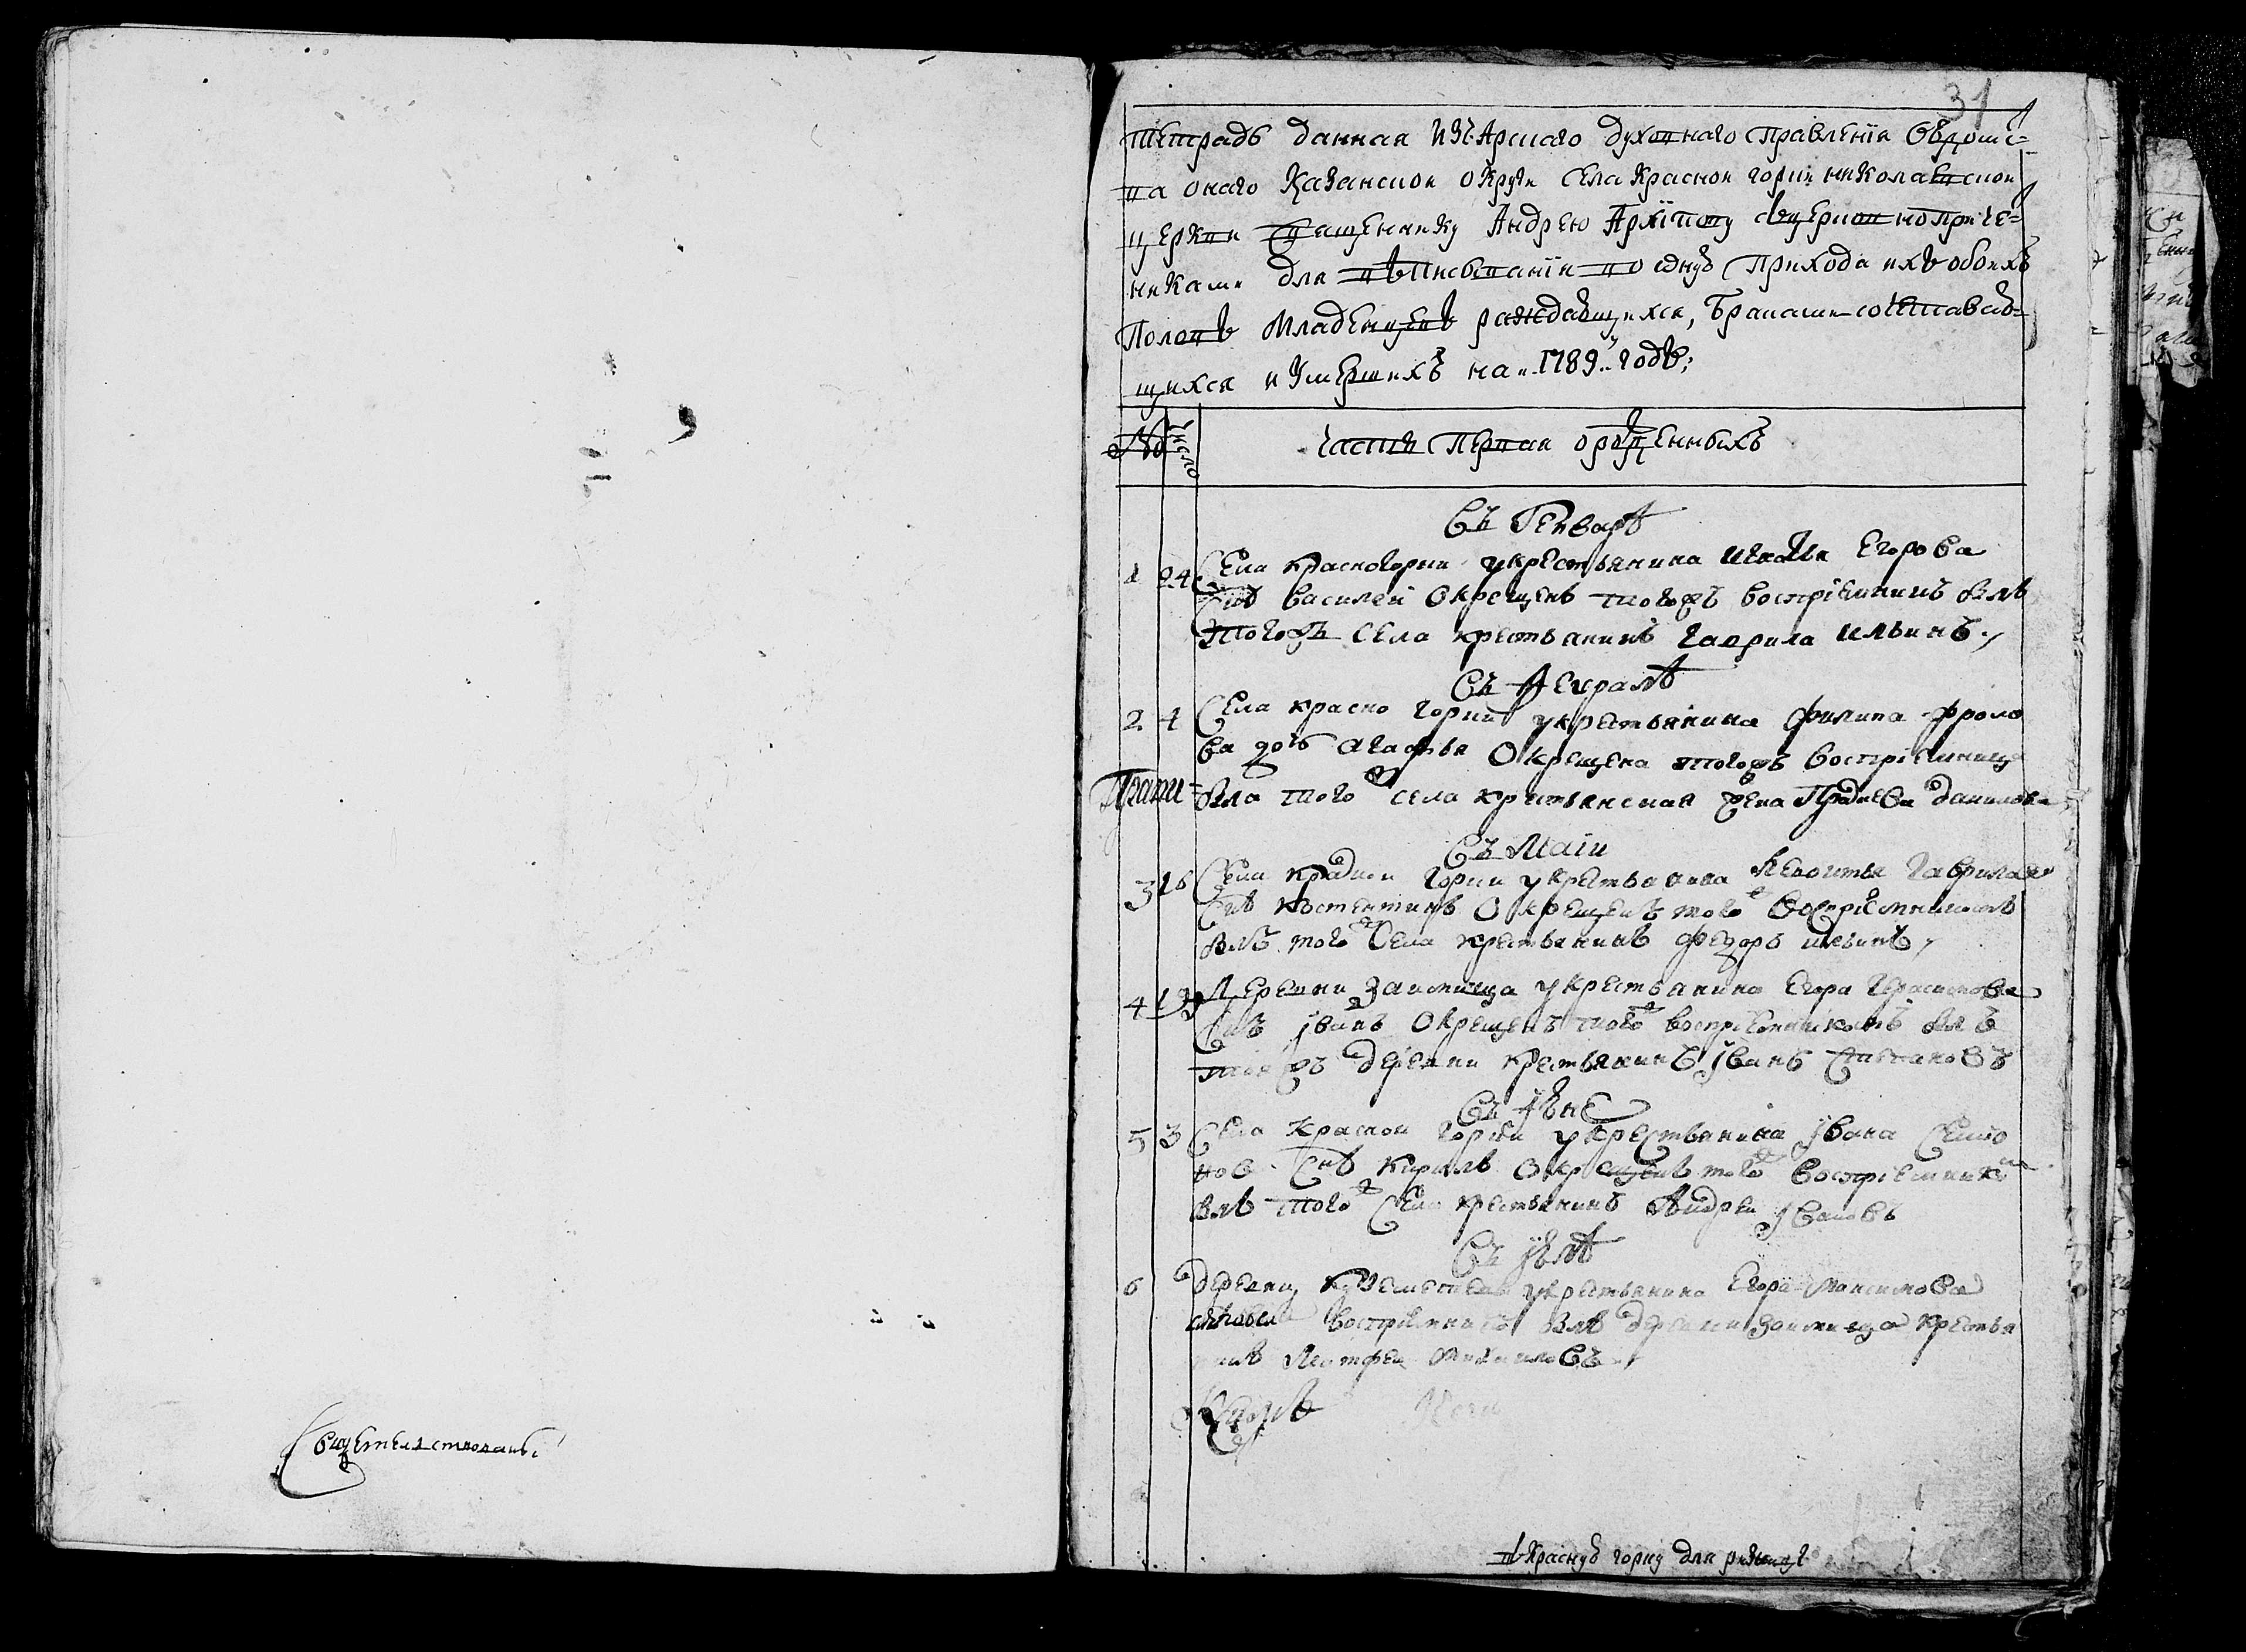 Свидетелствованъ
31
Тетрадь данная изъ Арскаго духовнаго правленія ведомс=
ва онаго Казанской округи села Красной горки николаевской
церкви Священнику Андрею Архіпову съ церковноприче=
никами для въписыванія во оную прихода ихъ обоихъ
Половъ младенцевъ раждающихся, браками сочетавою=
щихся и умершихъ на 1789 годъ;
№ число
часть первая о рожденныхъ
Въ Генваре
1 24 Села красногорки у крестьянина Егорова
снъ василей Окрещенъ тогожъ воспріемникъ былъ
тогожъ села крестьянинъ гаврила ильинъ
Въ Февралѣ
2 4 Села красно горки у крестьянина филипа фроло
ва дочь агафья Окрещена тогожъ воспріемница
была того ж села крестьянская жена данилова
Въ Маіи
3 Села красной горки у крестьянина гаврилова
снъ костентинъ Окрещенъ того ж воспріемникомъ
былъ того ж села крестьянинъ федоръ ильинъ
4 19 Деревни Займища у крестьянина Егора Герасимова
снъ іванъ Окрещенъ того ж воспріемникомъ былъ
тояжъ деревни крестьянинъ іванъ Степановъ
Въ іюне
5 3 Села Красной горки у крестьянина івана Семио
нов снъ кирилъ Окрещенъ того ж воспріемником
былъ того ж села крестьянинъ Андрей івановъ
Въ іюле
6 деревни у крестьянина Егора максимова
воспріемникъ былъ деревни займища крестья
нинъ михаиловъ
въ Красную горку для